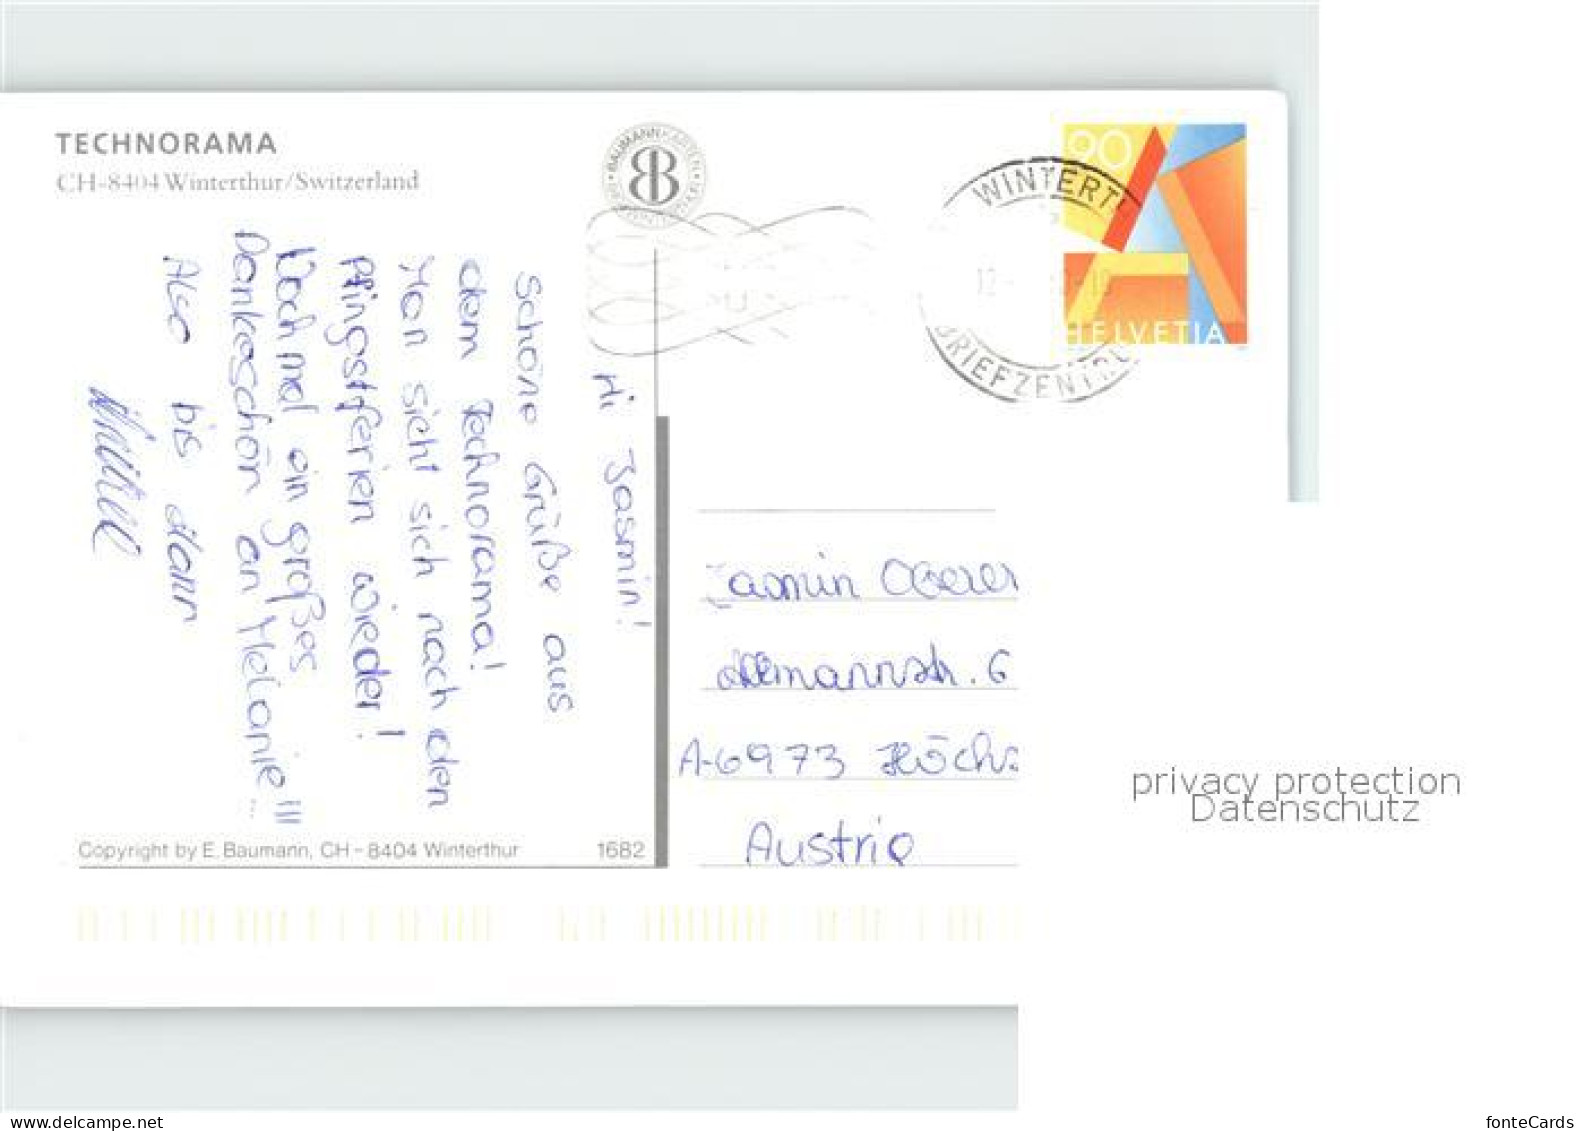 TECHNORAMA
CH-8404 Winterthur/Switzerland
BAUMANNKARTEN
90
HELVETIA
WINTERT
BRIEFZENTRU
12
Hi Jasmin!
Schöne Grüße aus
dem Technorama!
Man sieht sich nach den
Pfingstferien wieder!
Noch mal ein großes
Dankeschön an Melanie!!!
Also bis dann
Jasmin
str. 6
A-6973 Höchs
Austria
Copyright by E. Baumann, CH-8404 Winterthur
1682
privacy protection
Datenschutz
www.delcampe.net
fonteCards